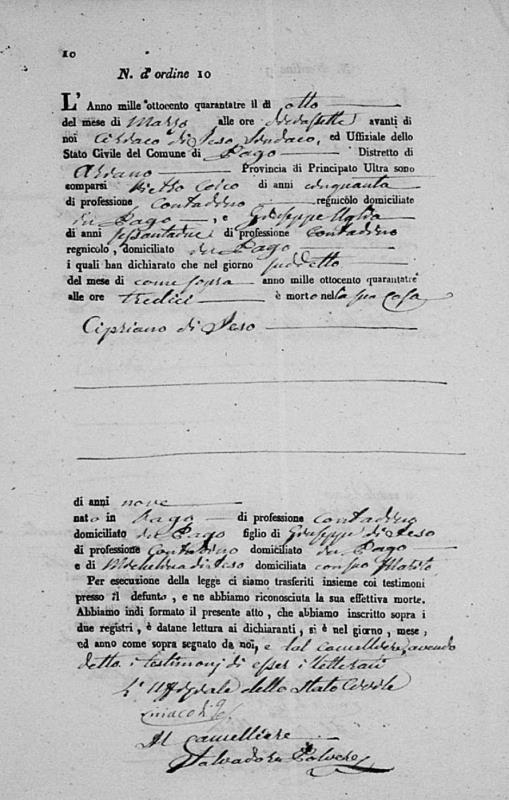 10
N. d'ordine 10
L' Anno mille ottocento quarantatre il dì otto
del mese di Marzo alle ore diciassette avanti di
noi Ciriaco di Jeso Sindaco, ed Uffiziale dello
Stato Civile del Comune di Pago Distretto di
Ariano Provincia di Principato Ultra sono
comparsi Pietro Coico di anni cinquanta
di professione Contadino regnicolo domiciliato
in Pago, e Giuseppe
di anni sessantadue di professione Contadino
regnicolo, domiciliato in Pago
i quali han dichiarato che nel giorno suddetto
del mese di come sopra anno mille ottocento quarantatre
alle ore tredici è morto nella sua Casa
Cipriano di Jeso
di anni nove
nato in Pago di professione contadino
domiciliato in Pago figlio di Giuseppe di Jeso
di professione Contadino domiciliato in Pago
e di di Jeso domiciliata con suo Marito
Per esecuzione della legge ci siamo trasferiti insieme coi testimoni
presso il defunto, e ne abbiamo riconosciuta la sua effettiva morte.
Abbiamo indi formato il presente atto, che abbiamo inscritto sopra i
due registri, è datane lettura ai dichiaranti, si è nel giorno, mese,
ed anno come sopra segnato da noi, e dal cancelliere, avendo
detto i testimonj di esser illetterati
L'Uffiziale dello Stato Civile
Il cancelliere
Salvadore